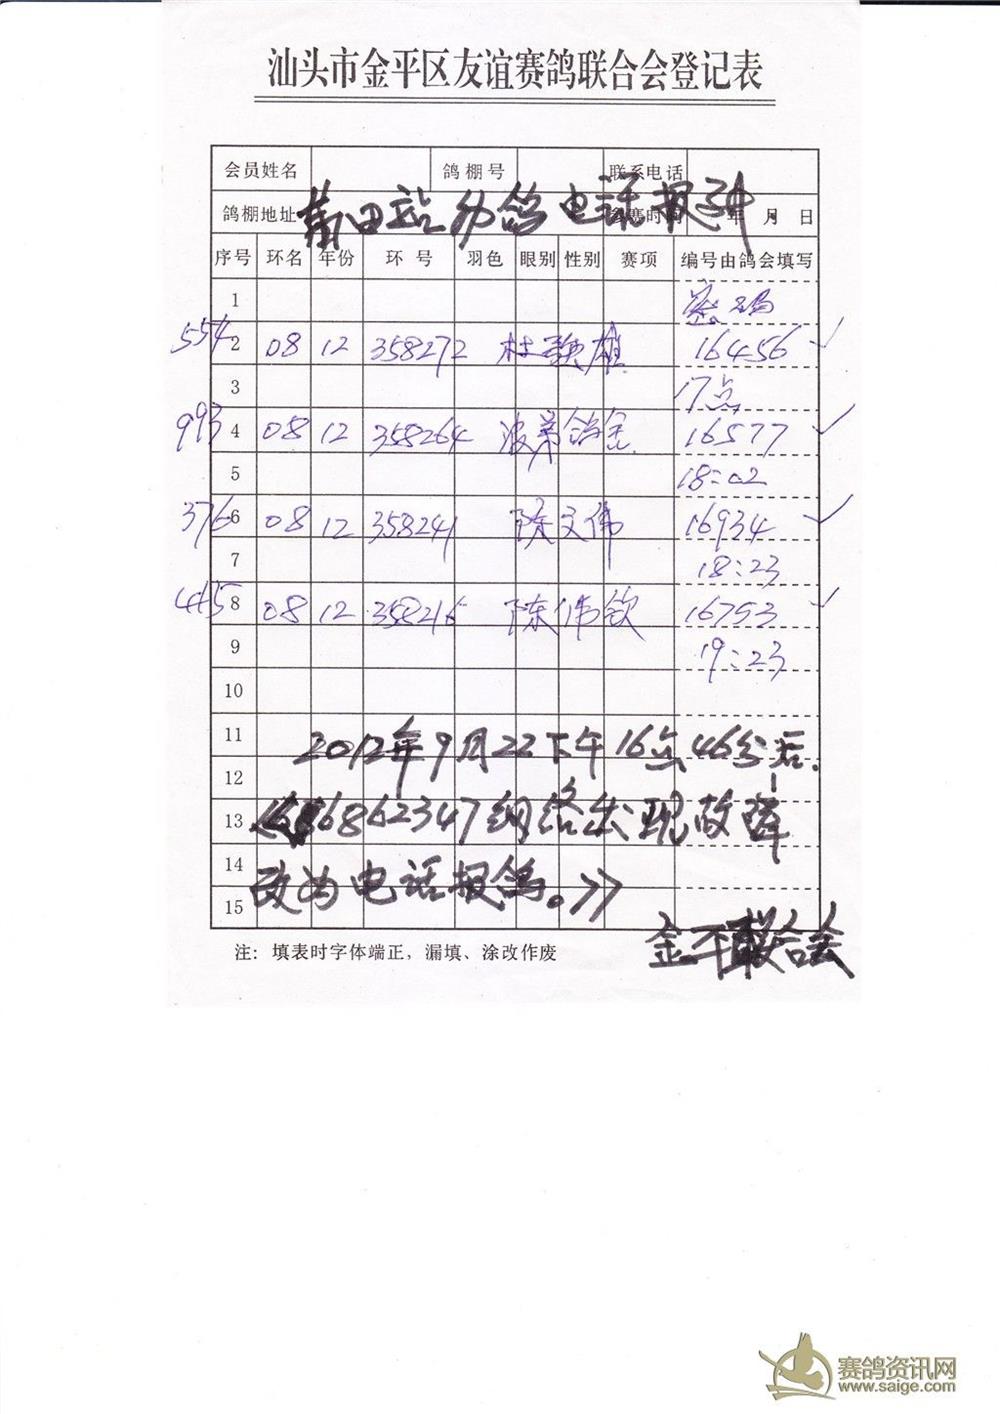 汕头市金平区友谊赛鸽联合会登记表
会员姓名 鸽棚号 联系电话
鸽棚地址 参赛时间 年 月 日
莆田站 鸽电话报到
序号 环名 年份 环号 羽色 眼别 性别 赛项 编号由鸽会填写
1 密码
554 2 08 12 358272 杜 雄 16456 ✓
3 17点
993 4 08 12 358264 波弟鸽舍 16577 ✓
5 18:02
376 6 08 12 358241 陈文伟 16934 ✓
7 18:23
445 8 08 12 358216 陈伟钦 16793 ✓
9 19:23
10
11 2012年9月22下午16点46分后.
12
13 16862347网络出现故障
14 改为电话报鸽。>>
15
金平联合会
注：填表时字体端正，漏填、涂改作废
赛鸽资讯网
www.saige.com